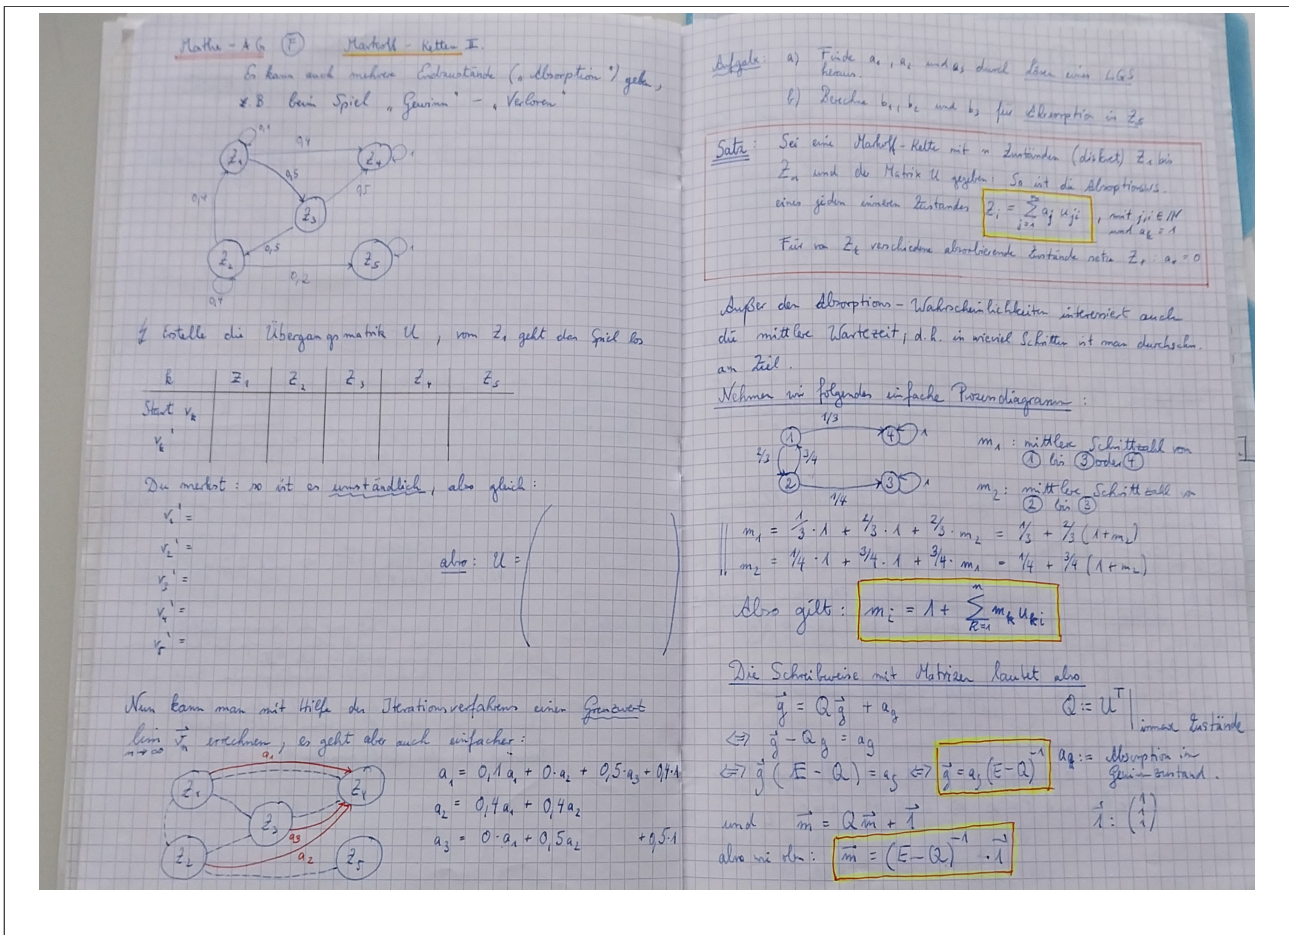 Mathe - AG (F) Markoff - Ketten II.
Es kann auch mehrere Endzustände („Absorption") geben,
z.B beim Spiel „Gewinn" - „Verloren"
0,1
Z₁ 0,4 Z₄ 1
0,5
0,5
0,4 Z₃
0,5
Z₂ Z₅ 1
0,2
0,4
Erstelle die Übergangsmatrix U, vom Z₁ geht das Spiel los
k Z₁ Z₂ Z₃ Z₄ Z₅
Start v_k
v_k'
Du merkst: so ist es umständlich, also gleich:
v₁' =
v₂' =
also: U = ( )
v₃' =
v₄' =
v₅' =
Nun kann man mit Hilfe des Iterationsverfahrens einen Grenzwert
lim n→∞ v⃗_n errechnen, es geht aber auch einfacher:
a₁
Z₁ Z₄
Z₃
a₃
Z₂ a₂ Z₅
a₁ = 0,1a₁ + 0·a₂ + 0,5·a₃ + 0,4·1
a₂ = 0,4a₁ + 0,4a₂
a₃ = 0·a₁ + 0,5a₂ + 0,5·1
Aufgabe: a) Finde a₁, a₂ und a₃ durch lösen eines LGS
heraus.
b) Berechne b₁, b₂ und b₃ für Absorption in Z₅
Satz: Sei eine Markoff-Kette mit n Zuständen (diskret) Z₁ bis
Z_n und der Matrix U gegeben: So ist die Absorptionsws.
eines jeden inneren Zustandes Z_i = Σ_{j=1}^{n} a_j u_{ji}, mit j,i ∈ ℕ
und a_k = 1
Für von Z_k verschiedene absorbierende Zustände setze Z_r a_r = 0
Außer den Absorptions-Wahrscheinlichkeiten interessiert auch
die mittlere Wartezeit, d.h. in wieviel Schritten ist man durchschn.
am Ziel.
Nehmen wir folgendes einfache Prozessdiagramm:
1/3
1 4 1
2/3 3/4
2 3 1
1/4
m₁: mittlere Schrittzahl von
① bis ③ oder ④
m₂: mittlere Schrittzahl v
② bis ③
m₁ = 1/3 · 1 + 2/3 · 1 + 2/3 · m₂ = 1/3 + 2/3 (1+m₂)
m₂ = 1/4 · 1 + 3/4 · 1 + 3/4 · m₁ = 1/4 + 3/4 (1+m₂)
Also gilt: m_i = 1 + Σ_{k=1}^{n} m_k u_{ki}
Die Schreibweise mit Matrizen lautet also
g⃗ = Q g⃗ + a_g Q := U^T | innere Zustände
⇔ g⃗ - Q g = a_g
⇔ g⃗ (E - Q) = a_g ⇔ g⃗ = a_g (E-Q)⁻¹ a_g := Absorption in
Gewinnzustand.
und m⃗ = Q m⃗ + 1⃗ 1⃗ : (1 1 1)
also wie oben: m⃗ = (E-Q)⁻¹ · 1⃗